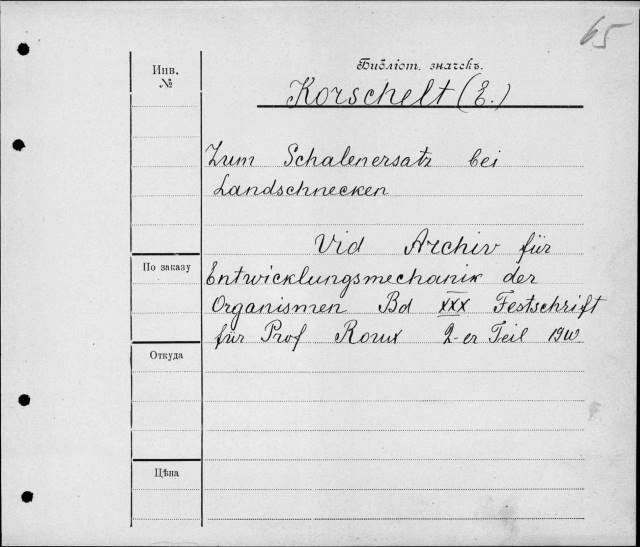 65
Инв.
№
Библіот. значекъ.
Korschelt (E.)
Zum Schalenersatz bei
Landschnecken
Vid Archiv für
По заказу
Entwicklungsmechanik der
Organismen Bd XXX Festschrift
für Prof Roux 2-er Teil 1910
Откуда
Цѣна